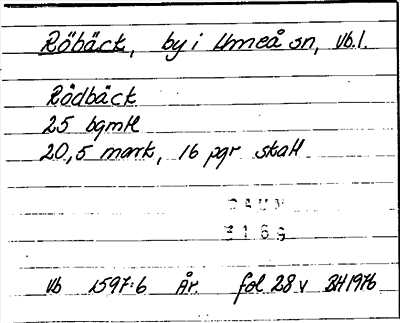 Röbäck, by i Umeå sn, Vb.l.
Rödbäck
25 bgmtl
20,5 mark, 16 pgr skatt
DAUM
3169
Vb 1597:6 År. fol 28 v BH 1976